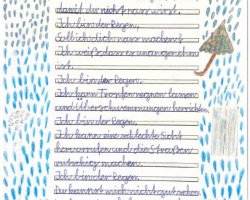 damit du nicht nass wirst.
Ich bin der Regen.
Soll ich dich nass machen?
Ich weiß dass es unangenehm
ist.
Ich bin der Regen.
Ich kann Tropfen regnen lassen
und Überschwemmungen herrichten.
Ich bin der Regen.
Ich kann eine schlechte Sicht
hervorrufen und die Straßen
rutschig machen.
Ich bin der Regen.
Du kannst mich nicht gut sehen